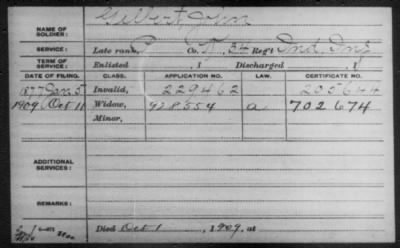 NAME OF SOLDIER: Gilbert, John
SERVICE: Late rank, P Co. K, 34 Reg't Ind. Inf
TERM OF SERVICE: Enlisted , 1 Discharged , 1
DATE OF FILING. CLASS. APPLICATION NO. LAW. CERTIFICATE NO.
1877 Jan 5 Invalid, 229462 205644
1909 Oct 11 Widow, 928554 a 702674
Minor,
ADDITIONAL SERVICES:
REMARKS:
Died Oct 1, 1909, at